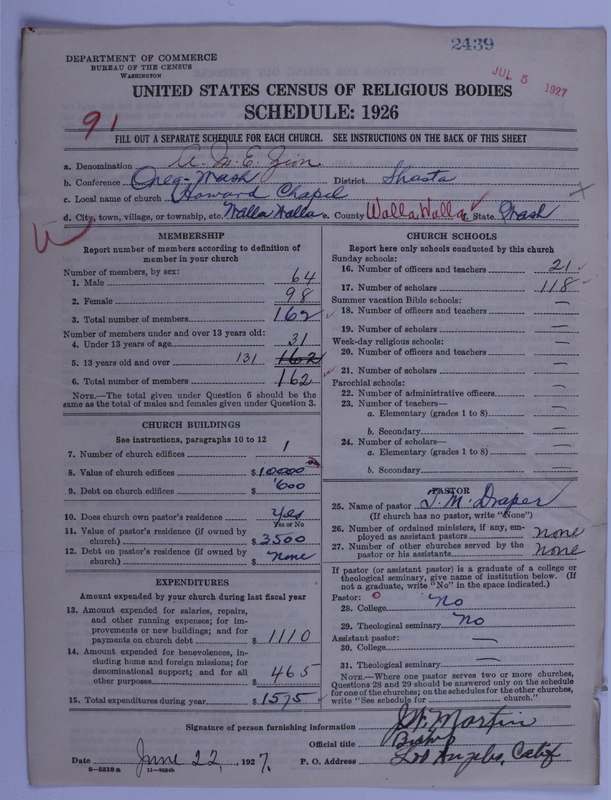 2439
DEPARTMENT OF COMMERCE
BUREAU OF THE CENSUS
WASHINGTON
JUL 5 1927
UNITED STATES CENSUS OF RELIGIOUS BODIES
SCHEDULE: 1926
91
FILL OUT A SEPARATE SCHEDULE FOR EACH CHURCH. SEE INSTRUCTIONS ON THE BACK OF THIS SHEET
a. Denomination A. M. E. Zion
b. Conference Oreg-Wash District Shasta
c. Local name of church Howard Chapel
d. City, town, village, or township, etc. Walla Walla e. County Walla Walla f. State Wash
MEMBERSHIP
Report number of members according to definition of
member in your church
Number of members, by sex:
1. Male 64
2. Female 98
3. Total number of members 162
Number of members under and over 13 years old:
4. Under 13 years of age 31
5. 13 years old and over 131 162
6. Total number of members 162
NOTE.—The total given under Question 6 should be
same as the total of males and females given under Question 3.
CHURCH BUILDINGS
See instructions, paragraphs 10 to 12
7. Number of church edifices 1
8. Value of church edifices $ 10000
9. Debt on church edifices $ 600
10. Does church own pastor's residence yes
Yes or No
11. Value of pastor's residence (if owned by
church) $ 3500
12. Debt on pastor's residence (if owned by
church) $ none
EXPENDITURES
Amount expended by your church during last fiscal year
13. Amount expended for salaries, repairs,
and other running expenses; for im-
provements or new buildings; and for
payments on church debt $ 1110
14. Amount expended for benevolences, in-
cluding home and foreign missions; for
denominational support; and for all
other purposes $ 465
15. Total expenditures during year $ 1575
CHURCH SCHOOLS
Report here only schools conducted by this church
Sunday schools:
16. Number of officers and teachers 21
17. Number of scholars 118
Summer vacation Bible schools:
18. Number of officers and teachers —
19. Number of scholars —
Week-day religious schools:
20. Number of officers and teachers —
21. Number of scholars —
Parochial schools:
22. Number of administrative officers —
23. Number of teachers—
a. Elementary (grades 1 to 8) —
b. Secondary —
24. Number of scholars—
a. Elementary (grades 1 to 8) —
b. Secondary —
PASTOR
25. Name of pastor J. M. Draper
(If church has no pastor, write "None")
26. Number of ordained ministers, if any, em-
ployed as assistant pastors none
27. Number of other churches served by the
pastor or his assistants none
If pastor (or assistant pastor) is a graduate of a college or
theological seminary, give name of institution below. (If
not a graduate, write "No" in the space indicated.)
Pastor:
28. College no
29. Theological seminary no
Assistant pastor:
30. College —
31. Theological seminary —
NOTE.—Where one pastor serves two or more churches,
Questions 28 and 29 should be answered only on the schedule
for one of the churches; on the schedules for the other churches,
write "See schedule for church."
Signature of person furnishing information J W Martin
Official title Bishop
Date June 22, 1927. P. O. Address Los Angeles, Calif
8-5518a 11-9034b